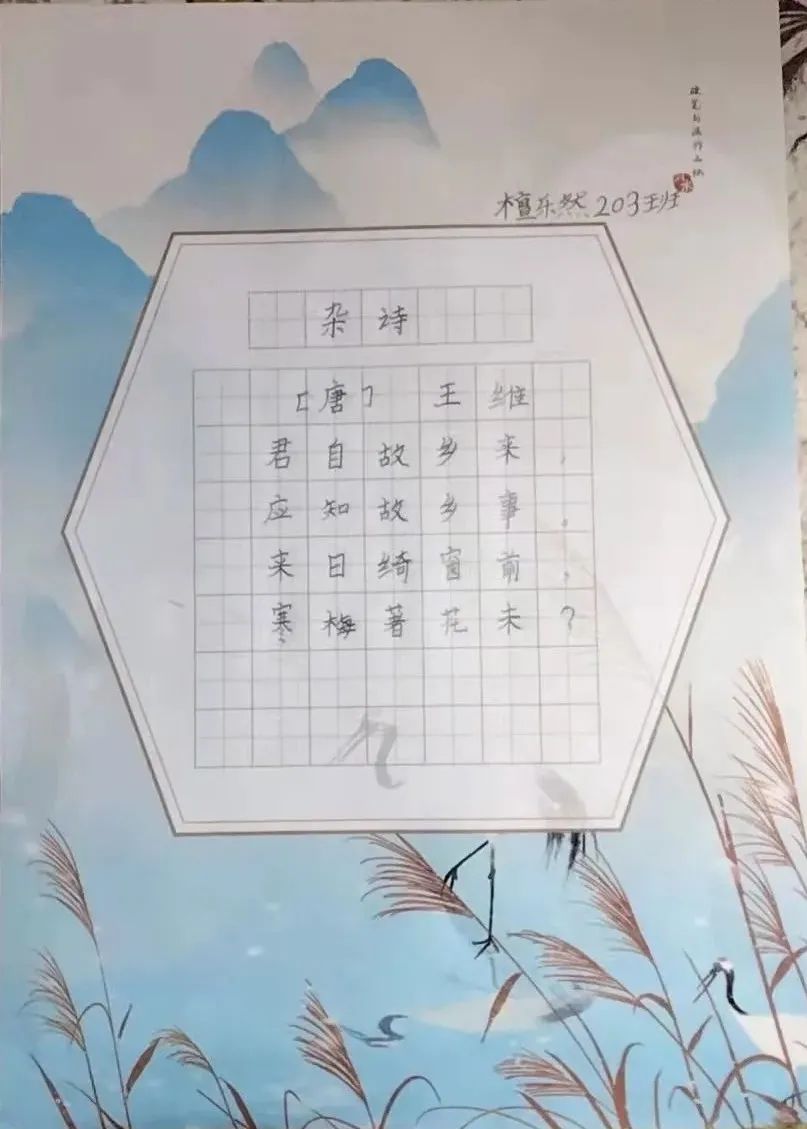 硬笔书法作品纸
檀乐然 203班
杂诗
[唐] 王维
君自故乡来，
应知故乡事。
来日绮窗前，
寒梅著花未？